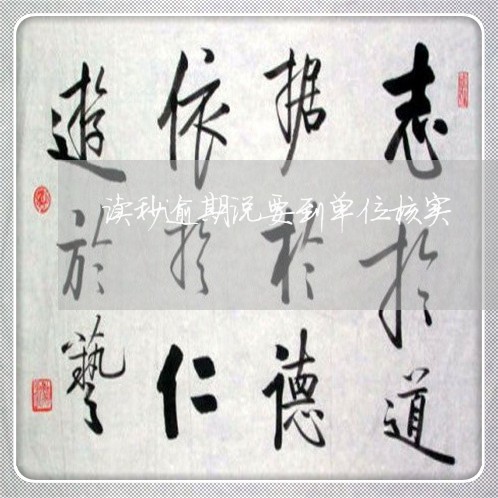 志於道
据於德
依於仁
遊於藝
读秒逾期说要到单位核实